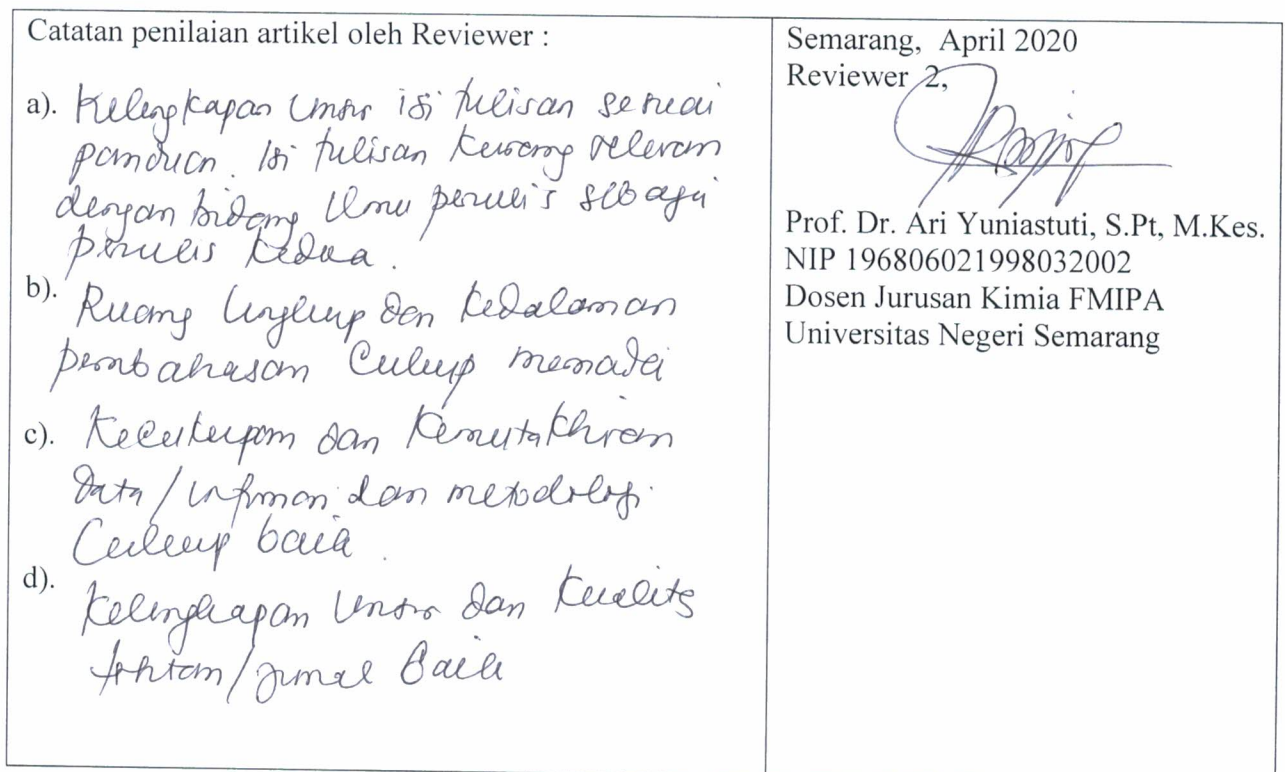 Catatan penilaian artikel oleh Reviewer :
a). Kelengkapan Unsur isi tulisan sesuai
panduan. Isi tulisan kurang relevan
dengan bidang Ilmu penulis sebagai
penulis kedua.
b). Ruang lingkup dan kedalaman
pembahasan Cukup memadai
c). Kecukupan dan Kemutakhiran
data/ dan metodologi
Cukup baik.
d). Kelengkapan Unsur dan Kualitas
/jurnal Baik
Semarang, April 2020
Reviewer 2,
Prof. Dr. Ari Yuniastuti, S.Pt, M.Kes.
NIP 196806021998032002
Dosen Jurusan Kimia FMIPA
Universitas Negeri Semarang